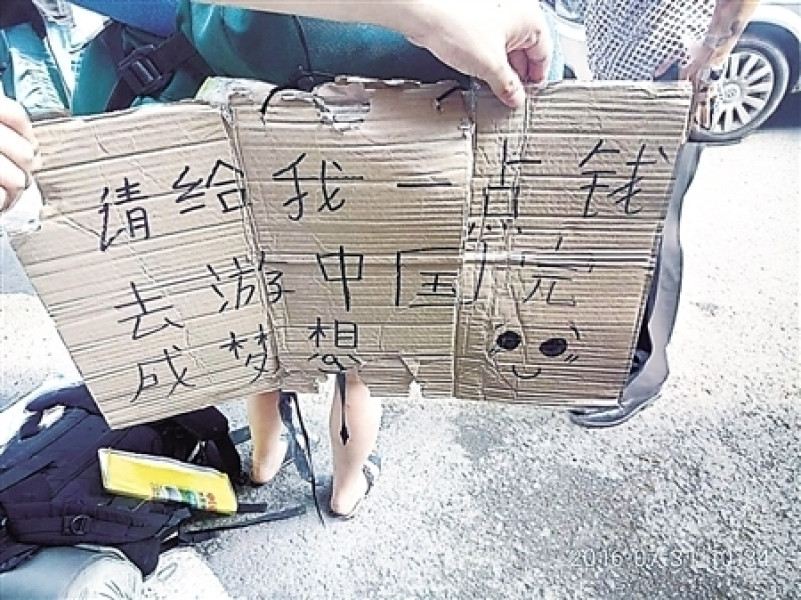 请给我一点钱
去游中国 完
成梦想
2016 07 31